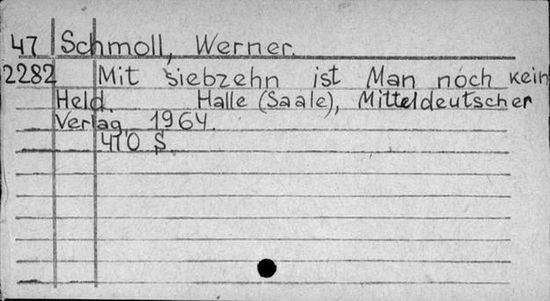 47 Schmoll, Werner.
2282 Mit siebzehn ist Man noch kein
Held. Halle (Saale), Mitteldeutscher
Verlag, 1964.
410 S.